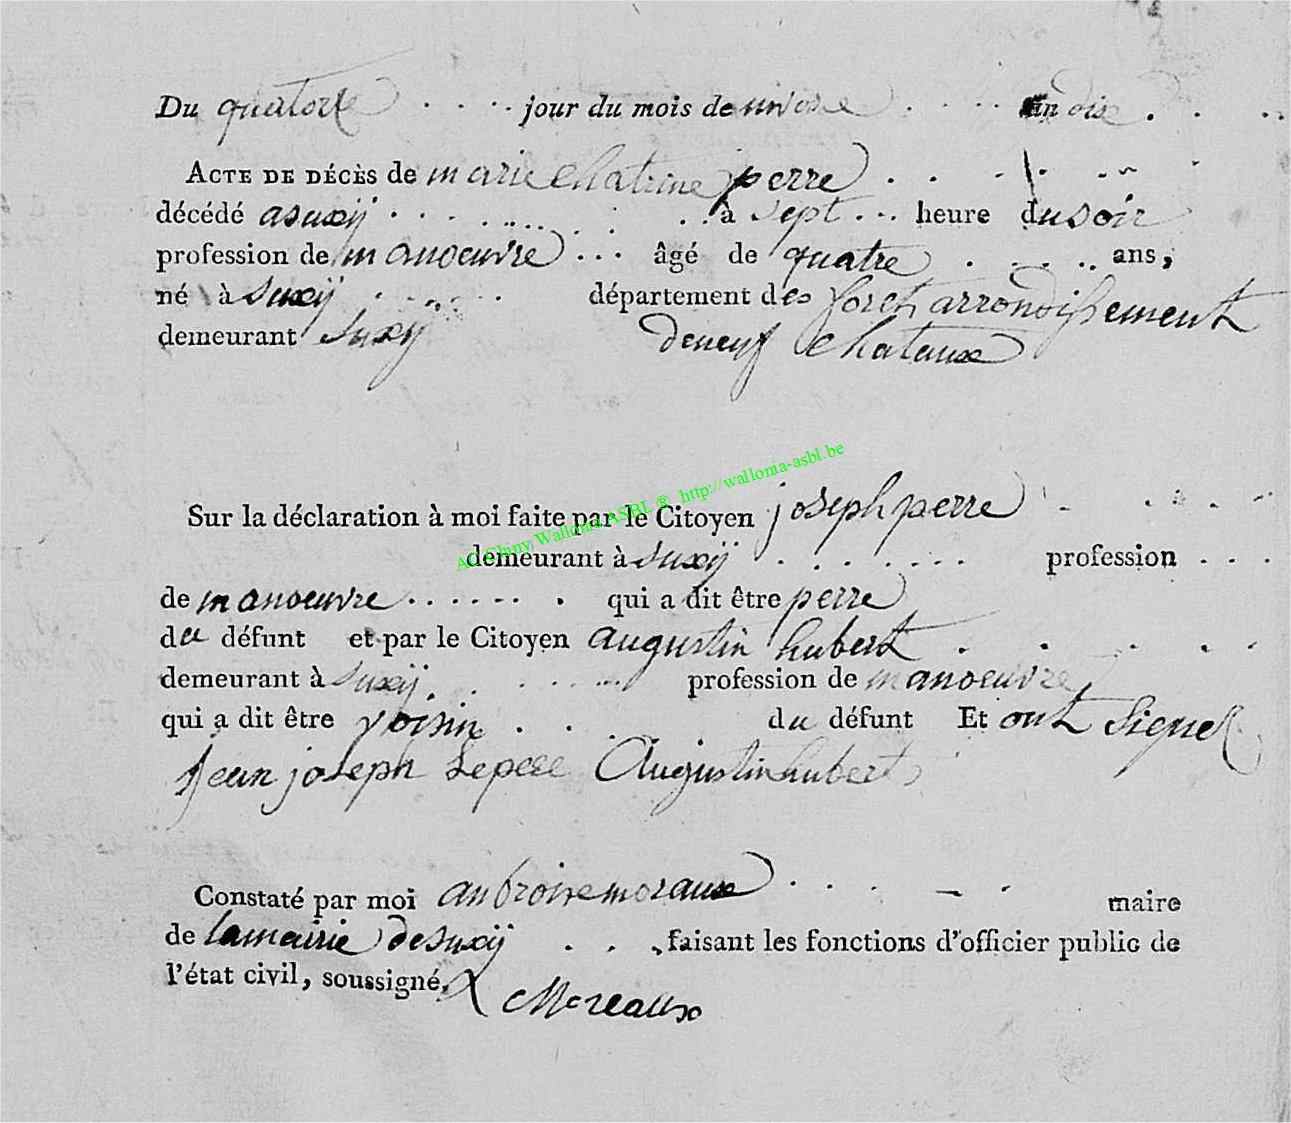 Du quatorze jour du mois de nivose an dix .
ACTE DE DÉCÈS de marie Chatrine perre
décédé a suxÿ à sept heure du soir
profession de manoeuvre âgé de quatre ans,
né à suxÿ département des foret arrondissement
demeurant suxÿ deneuf chataux
Sur la déclaration à moi faite par le Citoyen joseph perre
demeurant à suxÿ profession
de manoeuvre qui a dit être perre
du défunt et par le Citoyen augustin hubert
demeurant à suxÿ profession de manoeuvre
qui a dit être voisin du défunt Et ont signe
Jean joseph Augustin hubert
Constaté par moi anbroise moraux maire
de lamairie de suxÿ faisant les fonctions d'officier public de
l'état civil, soussigné, Moreaux
Wallonia ASBL ® http://wallonia-asbl.be